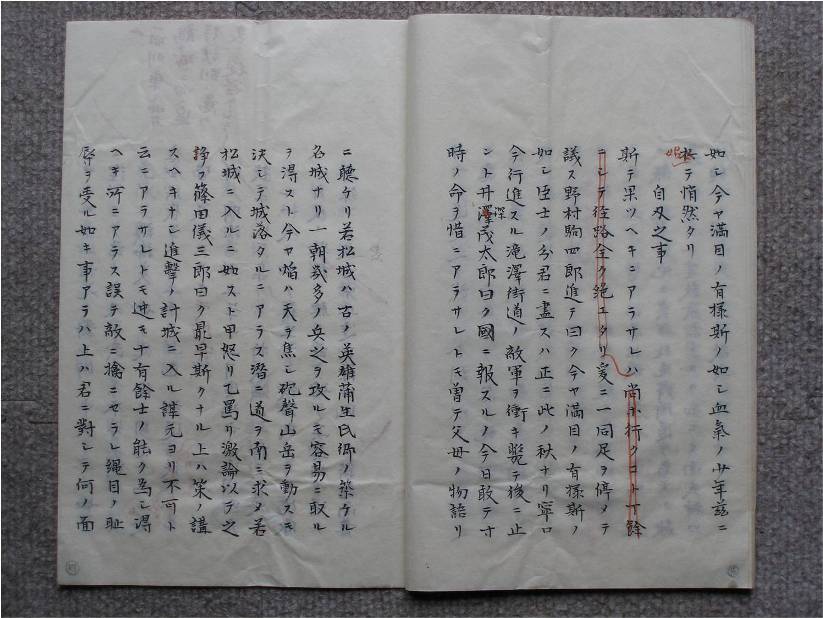 如シ今ヤ満目ノ有様斯ノ如シ血氣ノ少年茲ニ
於テ悄然タリ
自刃之事
斯テ果ツヘキニアラサレハ尚ホ行クコト丁餘
ニシテ径路全ク絶エタリ爰ニ一同足ヲ停メテ
議ス野村駒四郎進テ曰ク今ヤ満目ノ有様斯ノ
如シ臣士ノ分君ニ盡スハ正ニ此ノ秋ナリ寧ロ
今行進スル滝澤街道ノ敵軍ヲ衝キ斃テ後ニ止
ント井深茂太郎曰ク國ニ報スルノ今日敢テ寸
時ノ命ヲ惜ニアラサレトモ曽テ父母ノ物語リ
ニ聴ケリ若松城ハ古ノ英雄蒲生氏郷ノ築ケル
名城ナリ一朝幾多ノ兵之ヲ攻ルモ容易ニ取ル
ヲ得スト今ヤ焔ハ天ヲ焦シ砲聲山岳ヲ動スモ
決シテ城落タルニアラス潜ニ道ヲ南ニ求メ若
松城ニ入ルニ如スト甲怒リ乙罵リ激論以テ之
諍フ篠田儀三郎曰ク最早斯クナル上ハ策ノ講
スヘキナシ進撃ノ計城ニ入ル謀元ヨリ不可ト
云ニアラサレトモ迚モ十有餘士ノ能ク為シ得
ヘキ所ニアラス誤テ敵ニ擒ニセラレ縄目ノ耻
辱ヲ受ル如キ事アラハ上ハ君ニ對シテ何ノ面